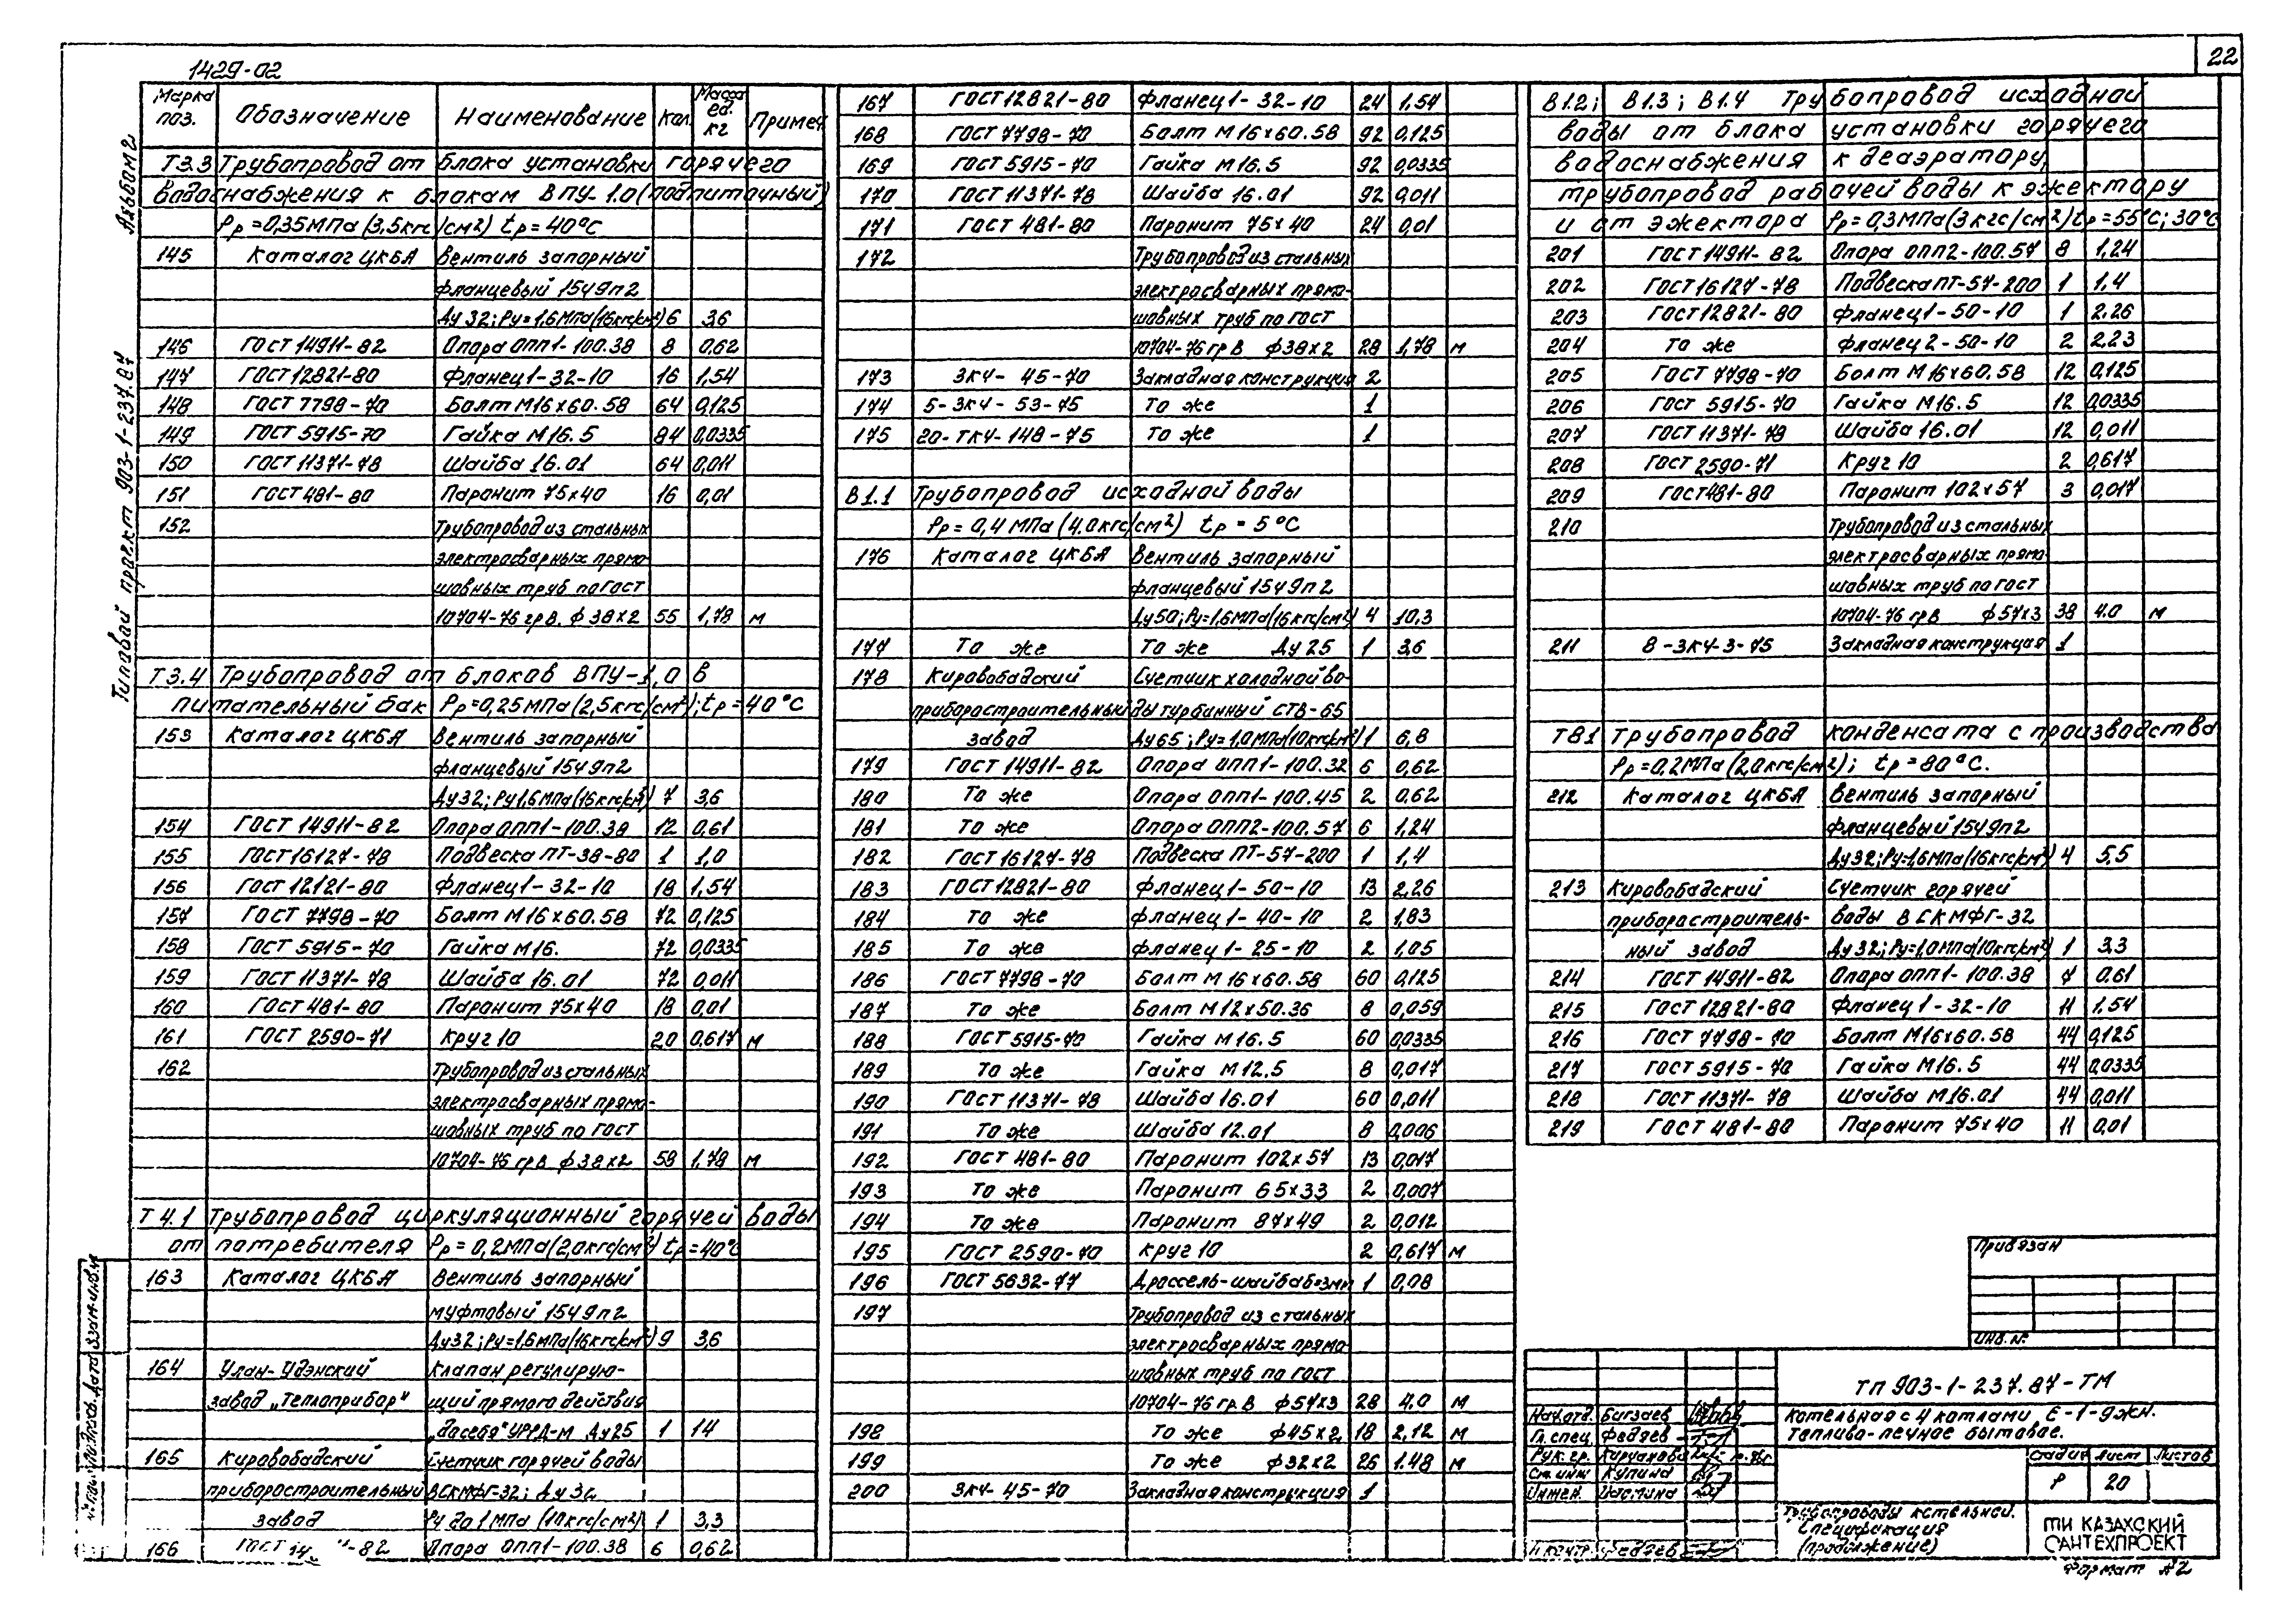 22
1429-02
Альбом 2
Типовой проект 903-1-237.87
Марка поз. Обозначение Наименование Кол. Масса ед. кг Примеч
Т3.3 Трубопровод от блока установки горячего
водоснабжения к блокам ВПУ-1.0 (подпиточный)
Рр=0,35МПа (3,5кгс/см²) tр=40°С
145 Каталог ЦКБА Вентиль запорный
фланцевый 15ч9п2
Ду 32; Ру=1,6МПа(16кгс/см²) 6 3,6
146 ГОСТ 14911-82 Опора ОПП1-100.38 8 0,62
147 ГОСТ 12821-80 Фланец 1-32-10 16 1,54
148 ГОСТ 7798-70 Болт М16х60.58 64 0,125
149 ГОСТ 5915-70 Гайка М16.5 84 0,0335
150 ГОСТ 11371-78 Шайба 16.01 64 0,011
151 ГОСТ 481-80 Паронит 75х40 16 0,01
152 Трубопровод из стальных
электросварных прямо-
шовных труб по ГОСТ
10704-76 гр В. ф 38х2 55 1,78 м
Т3.4 Трубопровод от блоков ВПУ-1,0 в
питательный бак Рр=0,25МПа (2,5кгс/см²); tр=40°С
153 Каталог ЦКБА Вентиль запорный
фланцевый 15ч9п2
Ду32; Ру1,6МПа(16кгс/см²) 7 3,6
154 ГОСТ 14911-82 Опора ОПП1-100.38 12 0,61
155 ГОСТ 16127-78 Подвеска ПТ-38-80 1 1,0
156 ГОСТ 12121-80 Фланец 1-32-10 18 1,54
157 ГОСТ 7798-70 Болт М16х60.58 72 0,125
158 ГОСТ 5915-70 Гайка М16. 72 0,0335
159 ГОСТ 11371-78 Шайба 16.01 72 0,011
160 ГОСТ 481-80 Паронит 75х40 18 0,01
161 ГОСТ 2590-71 Круг 10 20 0,617 м
162 Трубопровод из стальных
электросварных прямо-
шовных труб по ГОСТ
10704-76 гр В ф 38х2 58 1,78 м
Т 4.1 Трубопровод циркуляционный горячей воды
от потребителя Рр=0,2МПа(2,0кгс/см²) tр=40°С
163 Каталог ЦКБА Вентиль запорный
муфтовый 15ч9п2
Ду32; Ру=1,6МПа(16кгс/см²) 9 3,6
164 Улан-Удэнский Клапан регулирую-
завод „Теплоприбор" щий прямого действия
„до себя" УРРД-М Ду25 1 14
165 Кировобадский Счетчик горячей воды
приборостроительный ВСКМФГ-32; Ду 32
завод Ру до 1 МПа (10кгс/см²) 1 3,3
166 ГОСТ -82 Опора ОПП1-100.38 6 0,62
167 ГОСТ 12821-80 Фланец 1-32-10 24 1,54
168 ГОСТ 7798-70 Болт М16х60.58 92 0,125
169 ГОСТ 5915-70 Гайка М16.5 92 0,0335
170 ГОСТ 11371-78 Шайба 16.01 92 0,011
171 ГОСТ 481-80 Паронит 75х40 24 0,01
172 Трубопровод из стальных
электросварных прямо-
шовных труб по ГОСТ
10704-76 гр В ф38х2 28 1,78 м
173 ЗК4-45-70 Закладная конструкция 2
174 5-ЗК4-53-75 То же 1
175 20-ТК4-148-75 То же 1
В1.1 Трубопровод исходной воды
Рр=0,4МПа (4.0кгс/см²) tр=5°С
176 Каталог ЦКБА Вентиль запорный
фланцевый 15ч9п2
Ду50; Ру=1,6МПа(16кгс/см²) 4 10,3
177 То же То же Ду 25 1 3,6
178 Кировобадский Счетчик холодной во-
приборостроительный ды турбинный СТВ-65
завод Ду65; Ру=1,0МПа(10кгс/см²) 1 6,8
179 ГОСТ 14911-82 Опора ОПП1-100.32 6 0,62
180 То же Опора ОПП1-100.45 2 0.62
181 То же Опора ОПП2-100.57 6 1,24
182 ГОСТ 16127-78 Подвеска ПТ-57-200 1 1,4
183 ГОСТ 12821-80 Фланец 1-50-10 13 2,26
184 То же Фланец 1-40-10 2 1,83
185 То же Фланец 1-25-10 2 1,05
186 ГОСТ 7798-70 Болт М 16х60.58 60 0,125
187 То же Болт М12х50.36 8 0,059
188 ГОСТ 5915-70 Гайка М16.5 60 0,0335
189 То же Гайка М12.5 8 0,017
190 ГОСТ 11371-78 Шайба 16.01 60 0,011
191 То же Шайба 12.01 8 0,006
192 ГОСТ 481-80 Паронит 102х57 13 0,017
193 То же Паронит 65х33 2 0,007
194 То же Паронит 87х49 2 0,012
195 ГОСТ 2590-70 Круг 10 2 0,617 м
196 ГОСТ 5632-77 Дроссель-шайба б=3мм 1 0,08
197 Трубопровод из стальных
электросварных прямо-
шовных труб по ГОСТ
10704-76 гр В ф57х3 28 4,0 м
198 То же ф45х2 18 2,12 м
199 То же ф32х2 26 1.48 м
200 ЗК4-45-70 Закладная конструкция 1
В1.2; В1.3; В1.4 Трубопровод исходной
воды от блока установки горячего
водоснабжения к деаэратору,
трубопровод рабочей воды к эжектору
и от эжектора Рр=0,3МПа(3кгс/см²) tр=55°С; 30°С
201 ГОСТ 14911-82 Опора ОПП2-100.57 8 1,24
202 ГОСТ 16127-78 Подвеска ПТ-57-200 1 1,4
203 ГОСТ 12821-80 Фланец 1-50-10 1 2.26
204 То же Фланец 2-50-10 2 2,23
205 ГОСТ 7798-70 Болт М16х60.58 12 0,125
206 ГОСТ 5915-70 Гайка М16.5 12 0,0335
207 ГОСТ 11371-78 Шайба 16.01 12 0,011
208 ГОСТ 2590-71 Круг 10 2 0,617
209 ГОСТ 481-80 Паронит 102х57 3 0,017
210 Трубопровод из стальных
электросварных прямо-
шовных труб по ГОСТ
10704-76 гр В ф57х3 38 4.0 м
211 8-ЗК4-3-75 Закладная конструкция 1
Т81 Трубопровод конденсата с производства
Рр=0,2МПа (2,0кгс/см²); tр=80°С.
212 Каталог ЦКБА Вентиль запорный
фланцевый 15ч9п2
Ду32; Ру=1,6МПа(16кгс/см²) 4 5,5
213 Кировобадский Счетчик горячей
приборостроитель- воды ВСКМФГ-32
ный завод Ду 32; Ру=1,0МПа(10кгс/см²) 1 3.3
214 ГОСТ 14911-82 Опора ОПП1-100.38 7 0.61
215 ГОСТ 12821-80 Фланец 1-32-10 11 1.54
216 ГОСТ 7798-70 Болт М16х60.58 44 0,125
217 ГОСТ 5915-70 Гайка М16.5 44 0,0335
218 ГОСТ 11371-78 Шайба М16.01 44 0,011
219 ГОСТ 481-80 Паронит 75х40 11 0,01
Привязан
Инв. №
ТП 903-1-237.87-ТМ
Котельная с 4 котлами Е-1-9ЖН.
Топливо-печное бытовое.
Нач.отд. Бигзаев
Гл.спец. Федяев
Рук. гр.
Ст. инж Кулина
Инжен.
Н.контр. Федяев
Стадия Лист Листов
Р 20
Трубопроводы котельной.
Спецификация
(продолжение)
ТИ КАЗАХСКИЙ
САНТЕХПРОЕКТ
Формат А2
Взам.инв.№